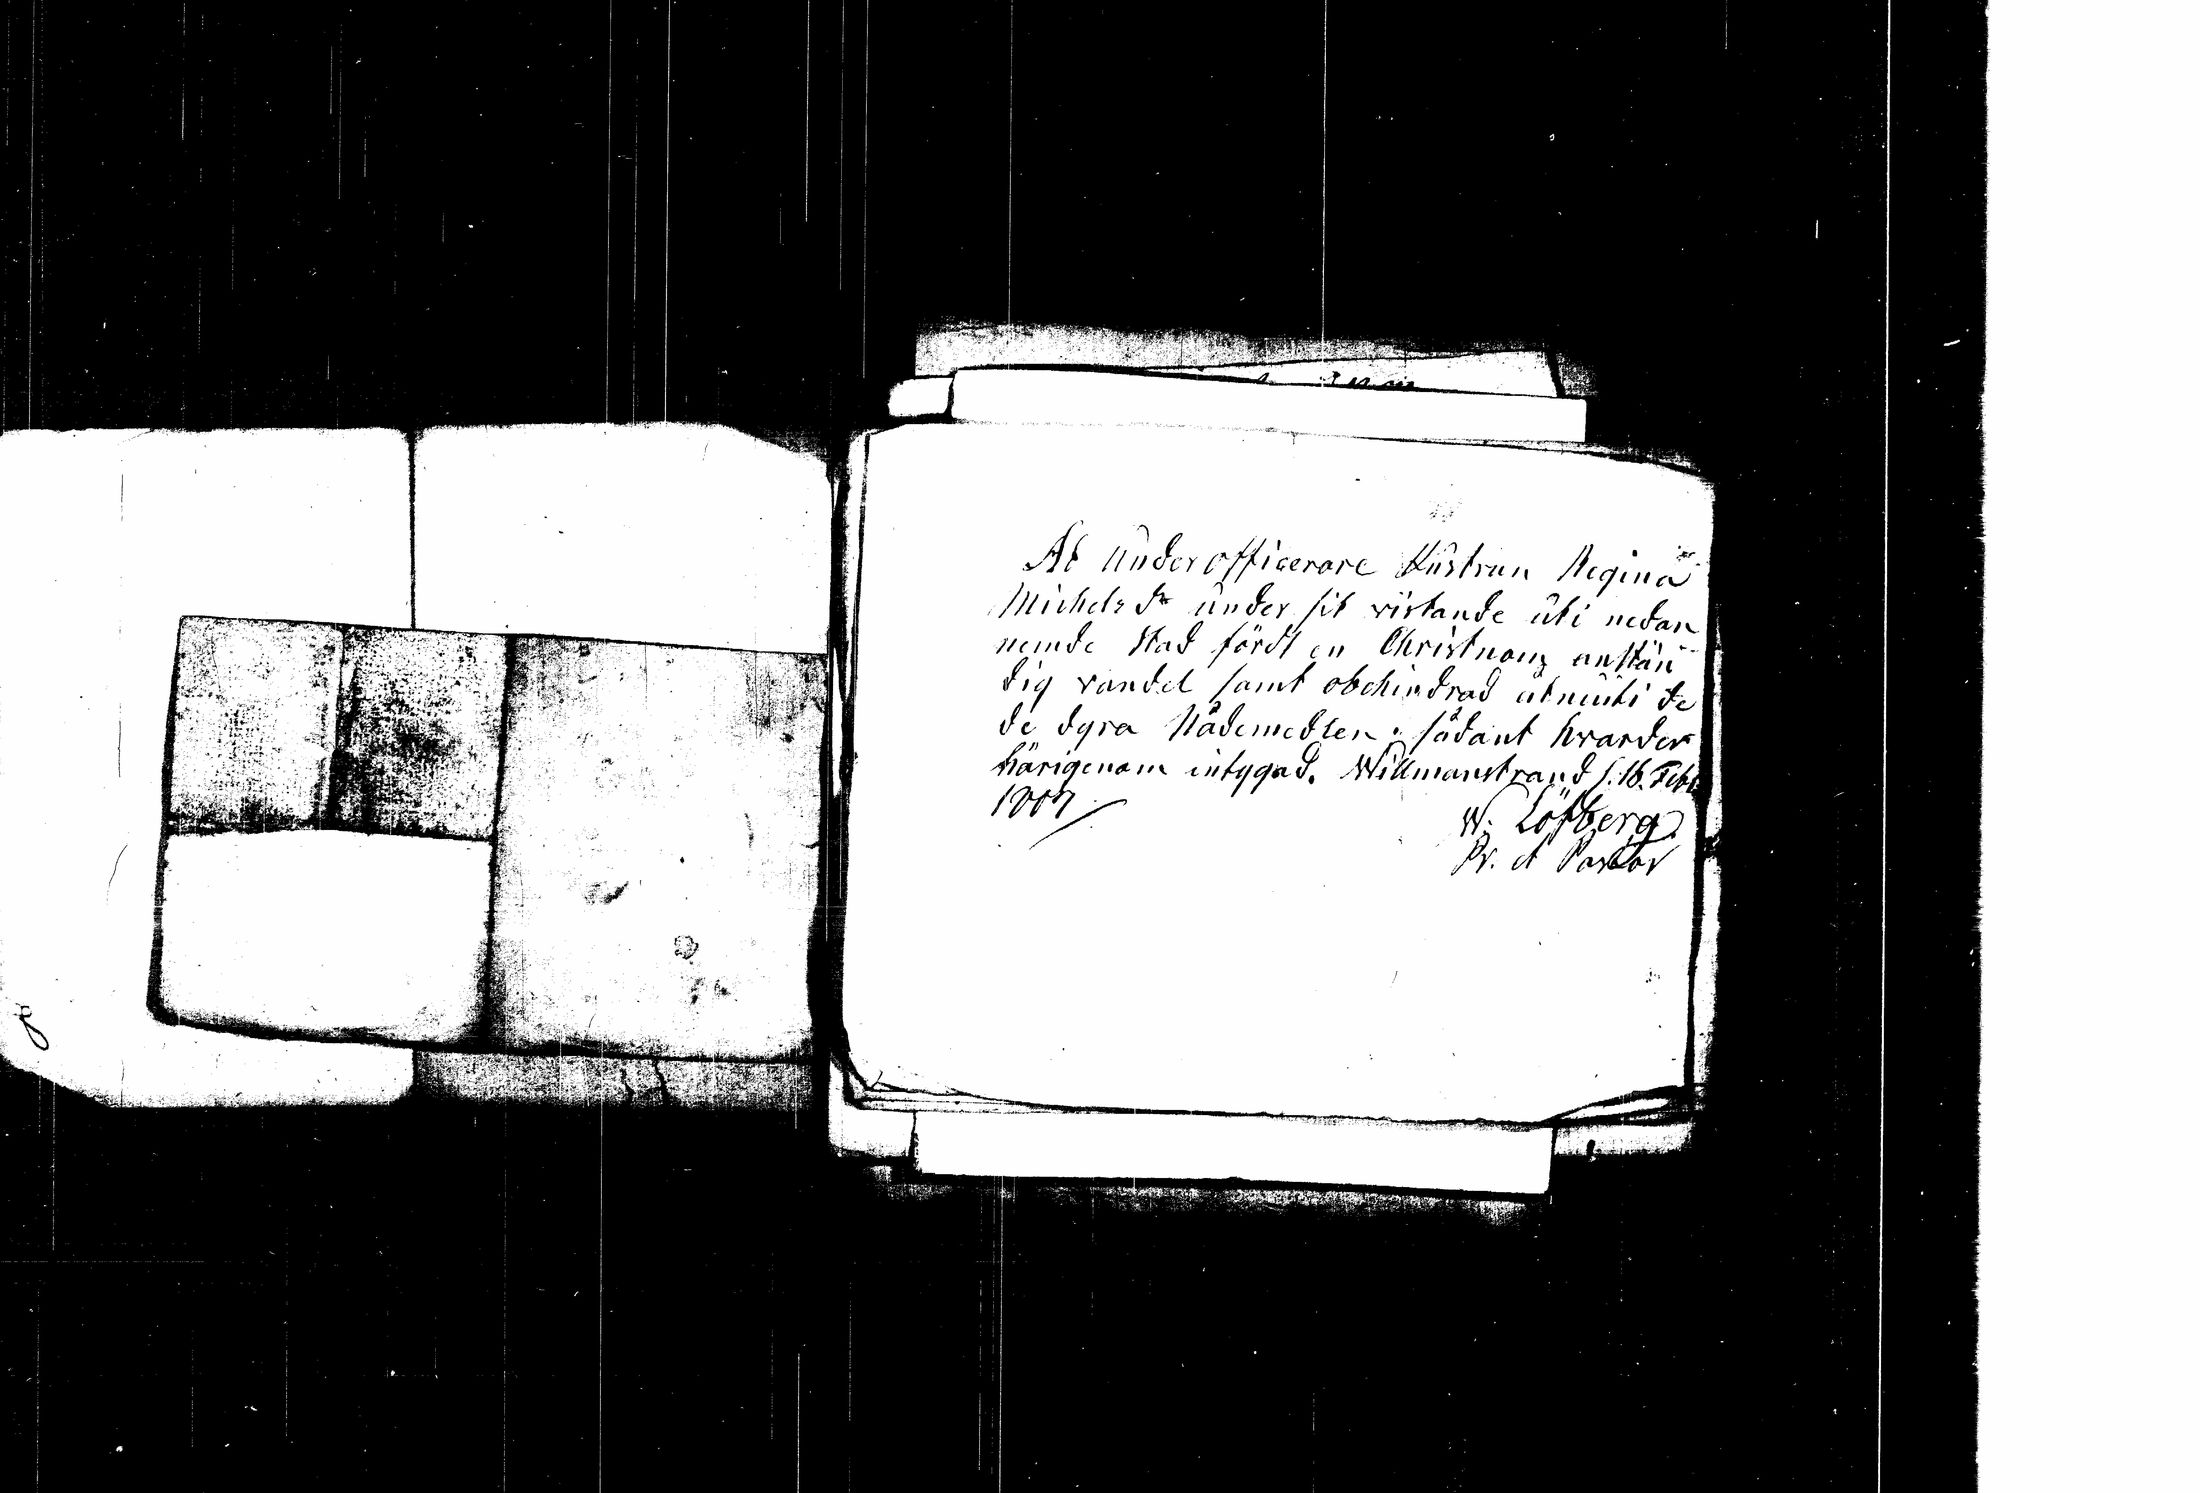 At Underofficerare Hustrun Regina
Michelsdr under sit vistande uti nedan
nemde Stad fördt en Christnom anstän
dig vandel samt obehindrad åtniutit de
de dyra Nådemedlen. sådant hwarder
härigenom intygad. Willmanstrand d. 16. Febr.
1807
W. Löfberg.
Pr. et Pastor